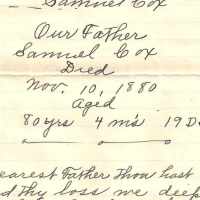 Samuel Cox
Our Father
Samuel Cox
Died
Nov. 10, 1880
Aged
80 yrs 4 m's 19 D
earest Father Thou hast
d thy loss we deep